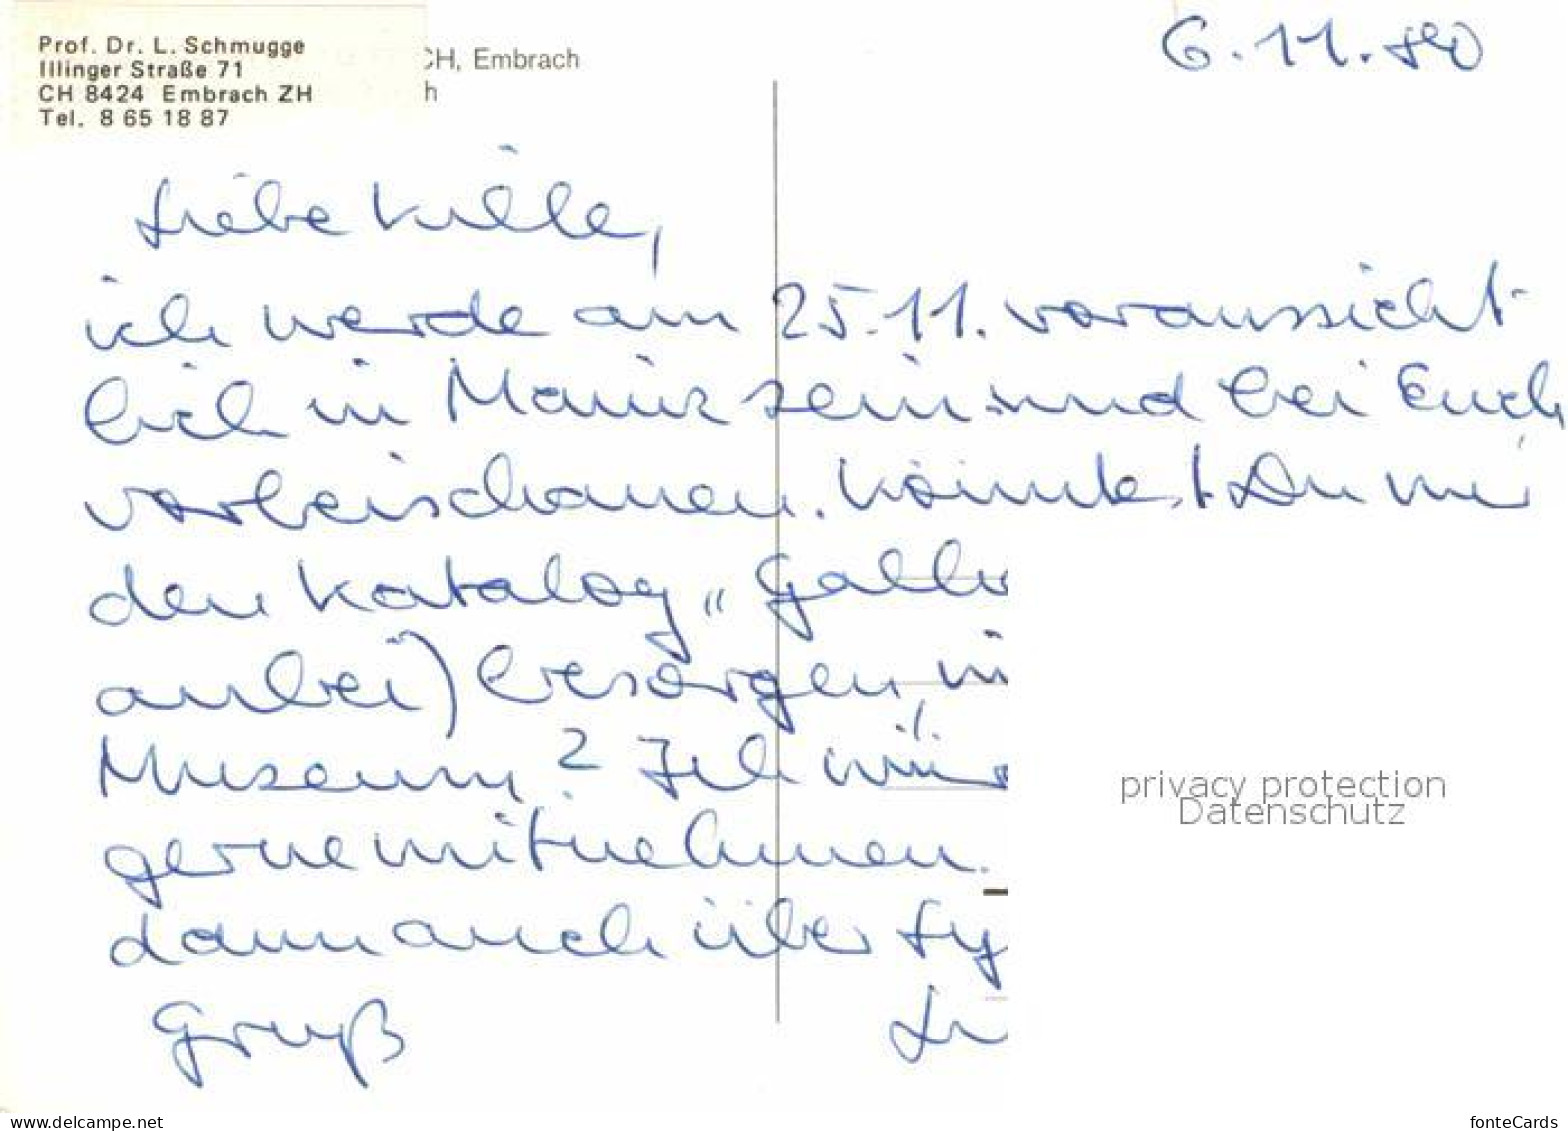 Prof. Dr. L. Schmugge
Illinger Straße 71
CH 8424 Embrach ZH
Tel. 8 65 18 87
CH, Embrach
h
6.11.80
Liebe
ich werde am 25.11. voraussicht
lich in Mainz sein und bei Euch
vorbeischauen. Könntest Du mir
den Katalog „Galli
anbei) besorgen, in
Museum? Ich wür
gerne mitnehmen.
dann auch über
Gruß
privacy protection
Datenschutz
www.delcampe.net
fonteCards